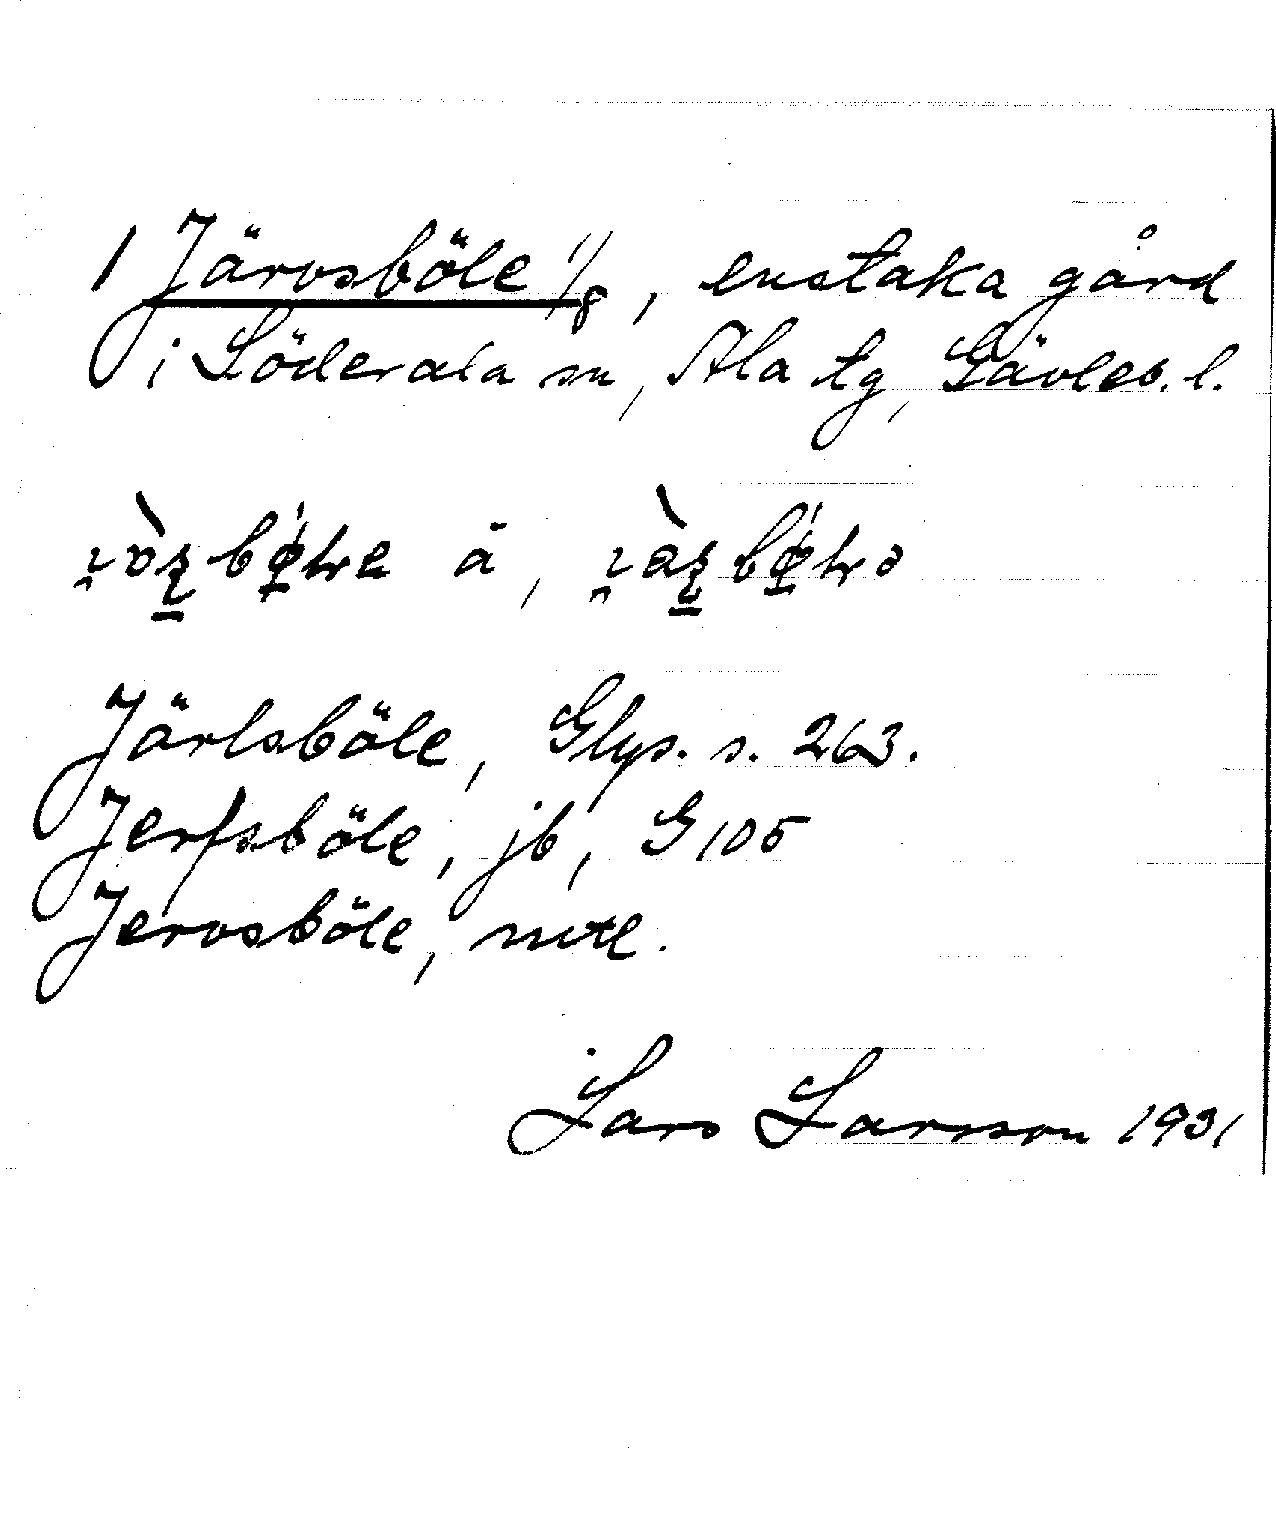 1 Järvsböle 1/8, enstaka gård
i Söderala sn, Ala tg, Gävleb. l.
ä,
Järlsböle, Glys. s. 263.
Jerfsböle, jb, G 105
Jervsböle, mtl.
Lars Larsson 1931